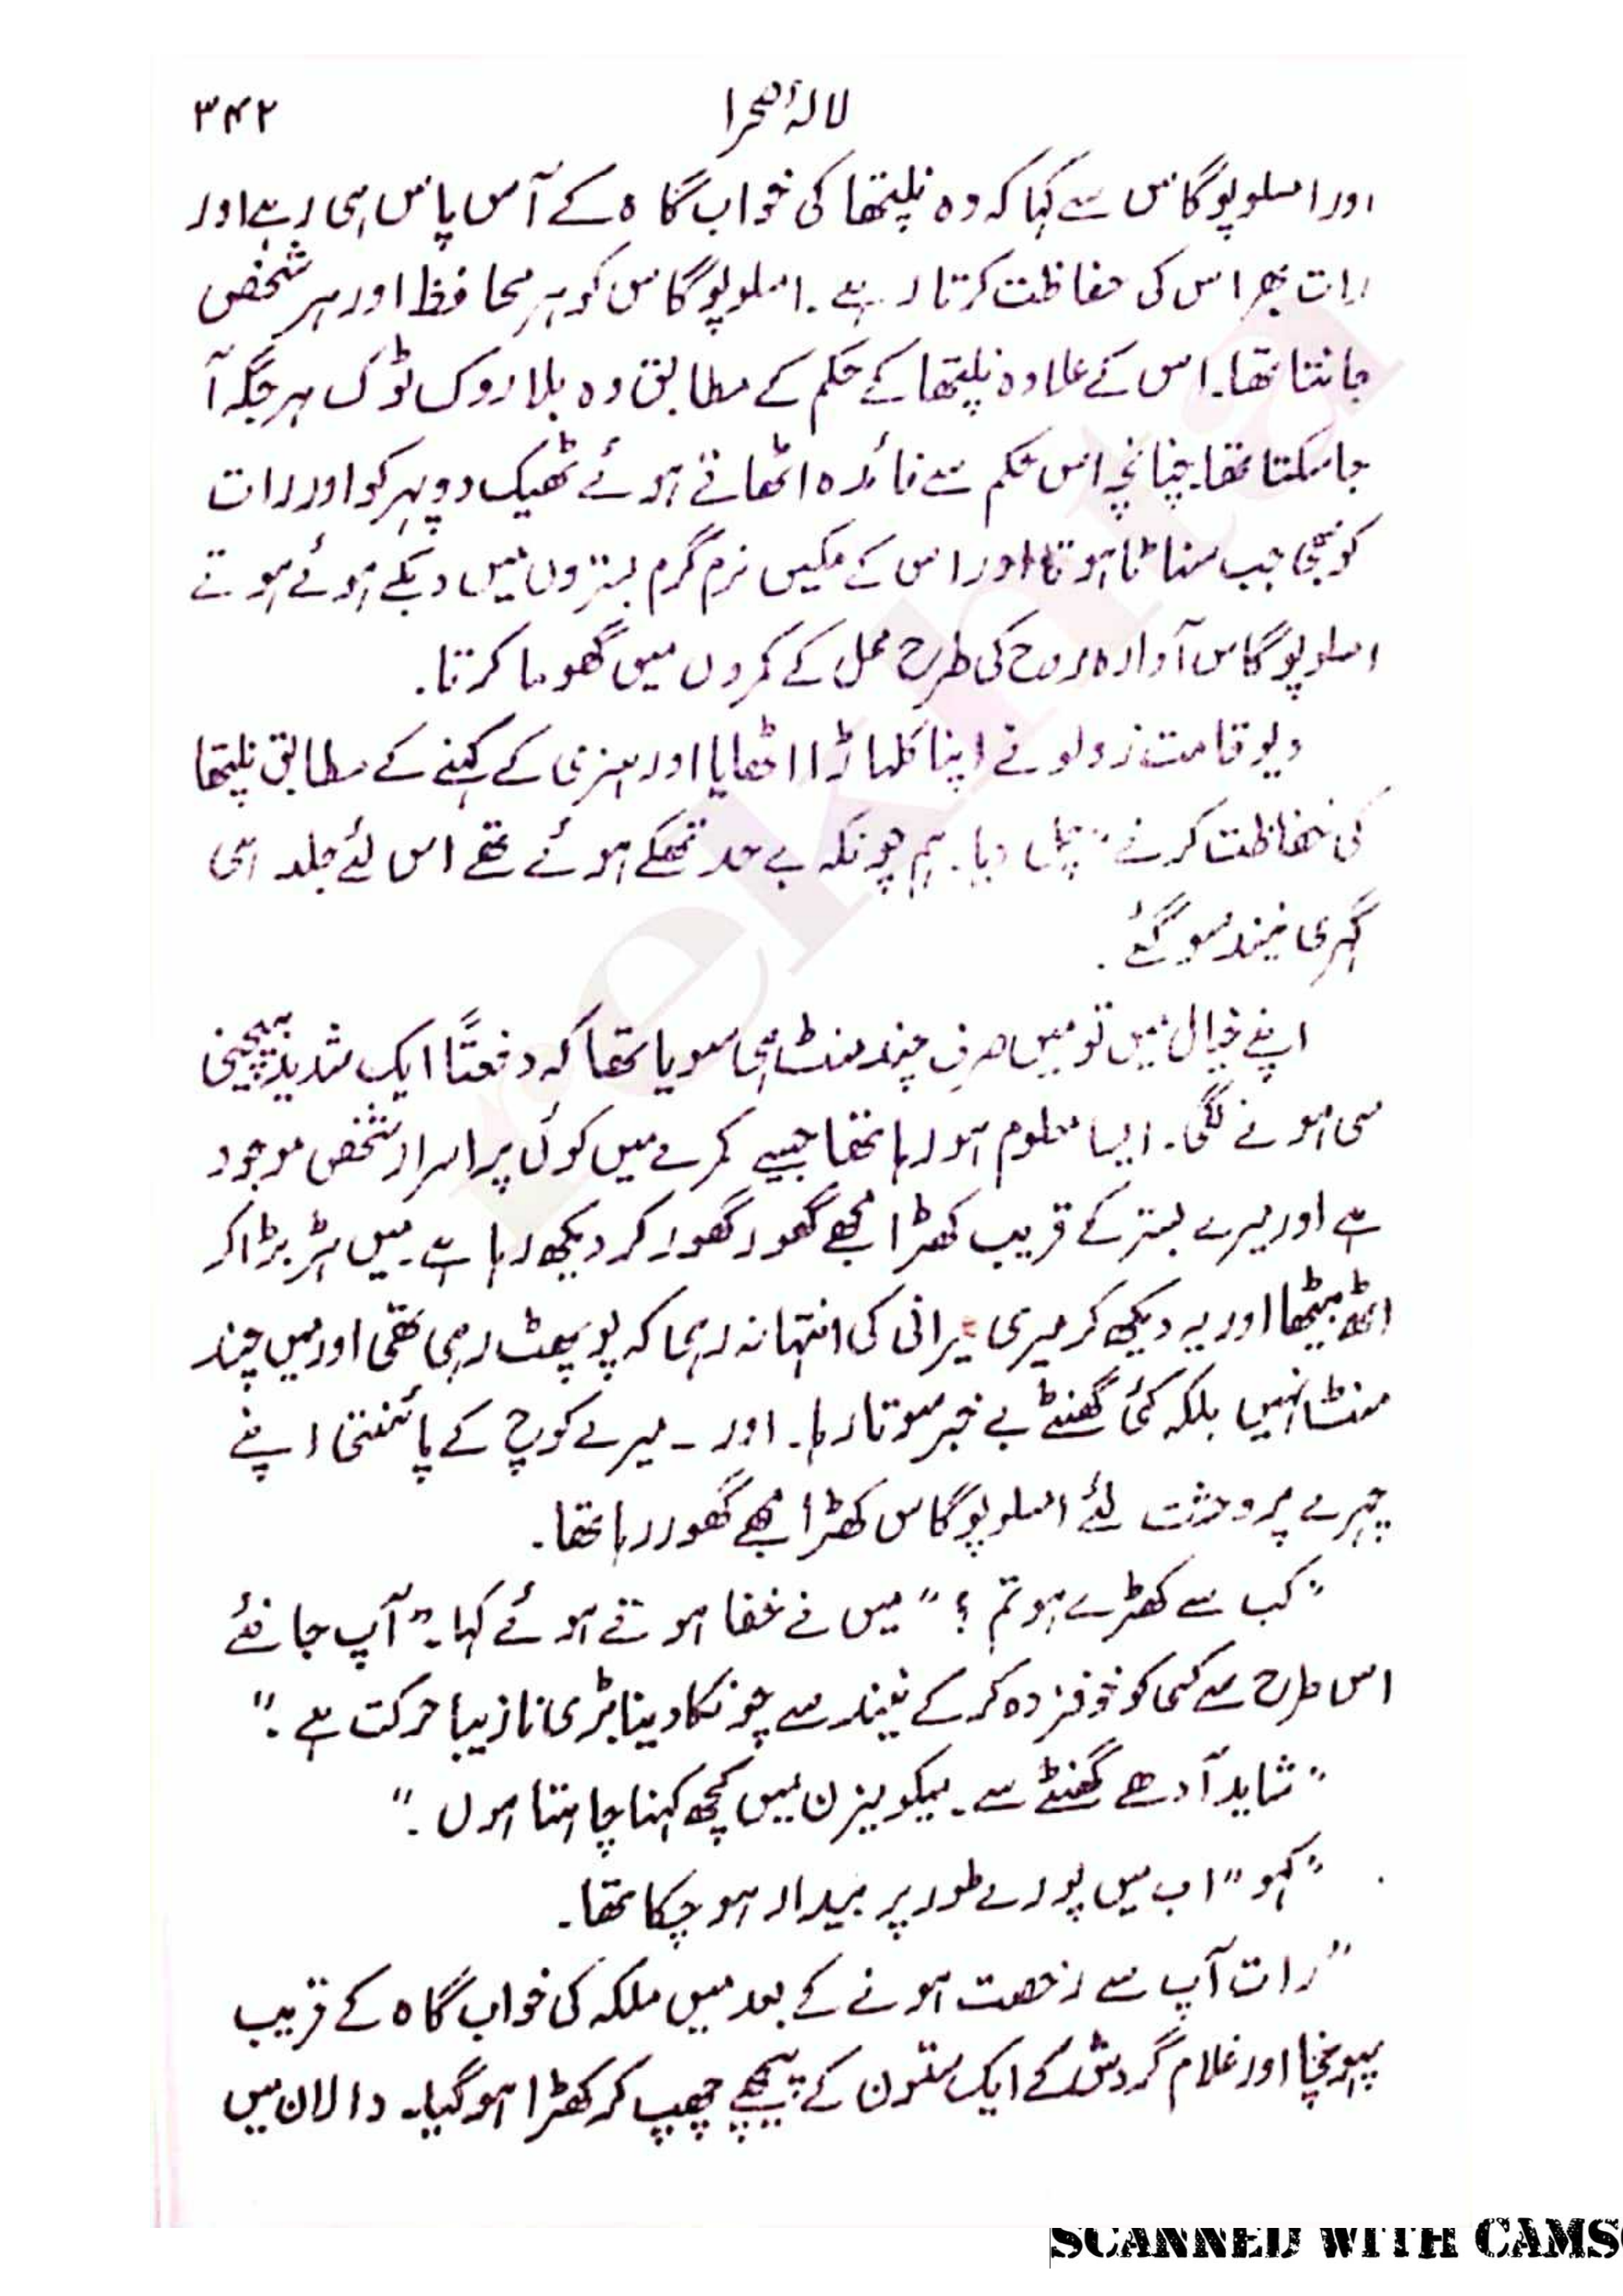 لالۂ صحرا ۳۴۲
اور امسلوپوگاس سے کہا کہ وہ نلیپتھا کی خواب گاہ کے آس پاس ہی رہے اور
رات بھر اس کی حفاظت کرتا رہے۔ امسلوپوگاس کو ہر محافظ اور ہر شخص
جانتا تھا۔ اس کے علاوہ نلیپتھا کے حکم کے مطابق وہ بلا روک ٹوک ہر جگہ آ
جا سکتا تھا۔ چنانچہ اس حکم سے فائدہ اٹھاتے ہوئے ٹھیک دوپہر کو اور رات
کو بھی جب سناٹا ہوتا اور اس کے مکیں نرم گرم بستروں میں دبکے ہوئے ہوتے
امسلوپوگاس آوارہ روح کی طرح محل کے کمروں میں گھوما کرتا۔
دیو قامت زولو نے اپنا کلہاڑا اٹھایا اور ہنری کے کہنے کے مطابق نلیپتھا
کی حفاظت کرنے چل دیا۔ ہم چونکہ بے حد تھکے ہوئے تھے اس لئے جلد ہی
گہری نیند سو گئے۔
اپنے خیال میں تو میں صرف چند منٹ ہی سویا تھا کہ دفعتاً ایک شدید بیچینی
سی ہونے لگی۔ ایسا معلوم ہو رہا تھا جیسے کمرے میں کوئی پراسرار شخص موجود
ہے اور میرے بستر کے قریب کھڑا مجھے گھور گھور کر دیکھ رہا ہے۔ میں ہڑبڑا کر
اٹھ بیٹھا اور یہ دیکھ کر میری حیرانی کی انتہا نہ رہی کہ پو پھٹ رہی تھی اور میں چند
منٹ نہیں بلکہ کئی گھنٹے بے خبر سوتا رہا۔ اور ۔ میرے کوچ کے پائنتی اپنے
چہرے پر وحشت لئے امسلوپوگاس کھڑا مجھے گھور رہا تھا۔
"کب سے کھڑے ہو تم؟" میں نے خفا ہوتے ہوئے کہا۔ "آپ جانئے
اس طرح سے کسی کو خوفزدہ کر کے نیند سے چونکا دینا بڑی نازیبا حرکت ہے۔"
"شاید آدھے گھنٹے سے۔ میکومیزن میں کچھ کہنا چاہتا ہوں۔"
"کہو" اب میں پورے طور پر بیدار ہو چکا تھا۔
"رات آپ سے رخصت ہونے کے بعد میں ملکہ کی خواب گاہ کے قریب
پہونچا اور غلام گردش کے ایک ستون کے پیچھے چھپ کر کھڑا ہو گیا۔ دالان میں
rekhta
SCANNED WITH CAMS